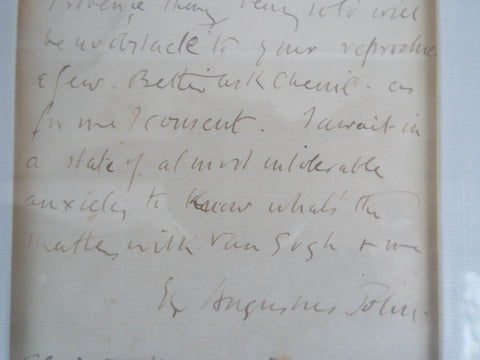 Provence things being sold will
be no obstacle to your reproducing
a few. Better ask Chenil. as
for me I consent. I await in
a state of almost intolerable
anxiety to know what's the
matter with Van Gogh & me
Augustus John.